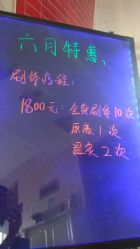 六月特惠:
刷体疗程:
1800元:全身刷体10次
原液1次
温灸2次